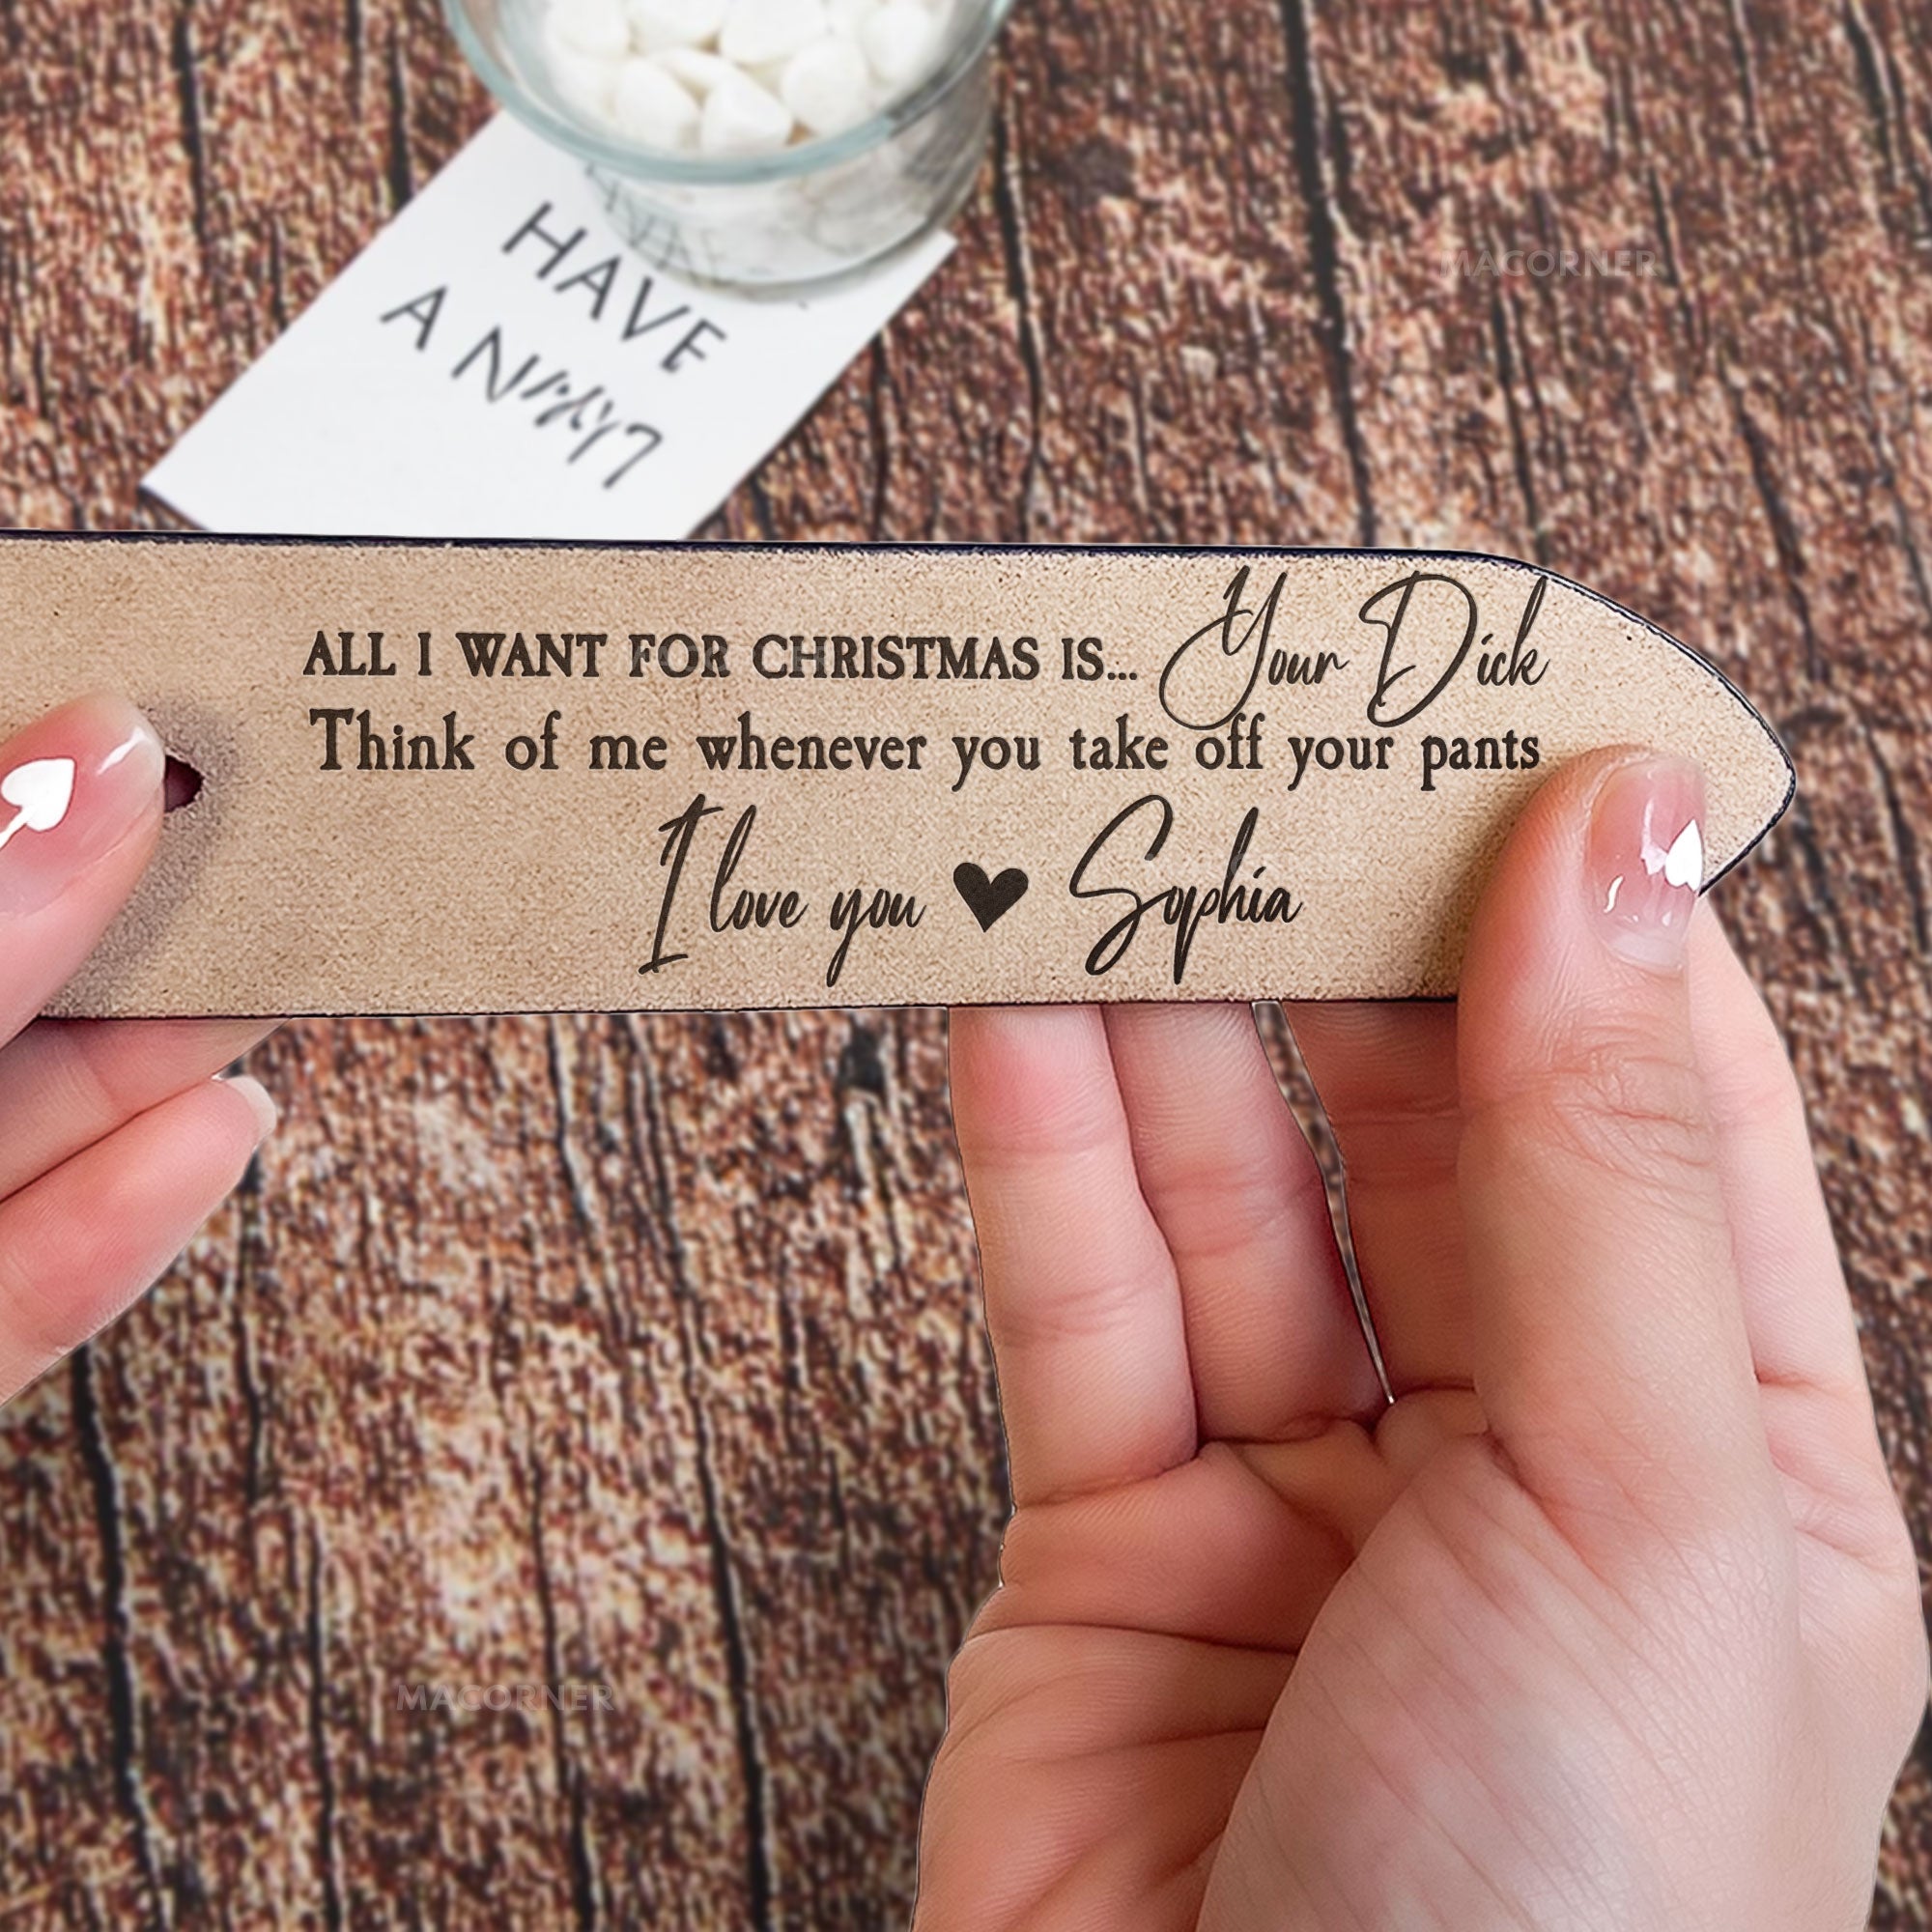 HAVE
A
MACORNER
ALL I WANT FOR CHRISTMAS IS... Your Dick
Think of me whenever you take off your pants
I love you ♥ Sophia
MACORNER